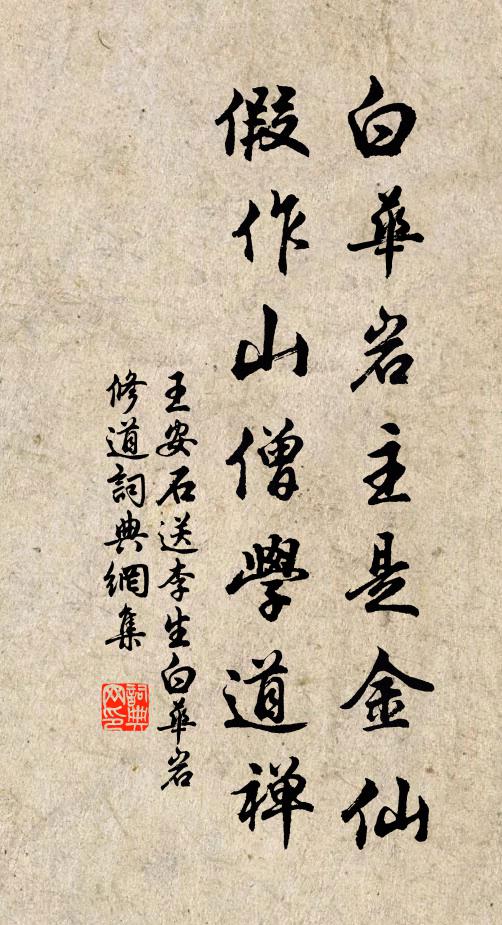 白華岩主是金仙
假作山僧學道禅
王安石送李生白華岩
修道詞典網集
詞典网印